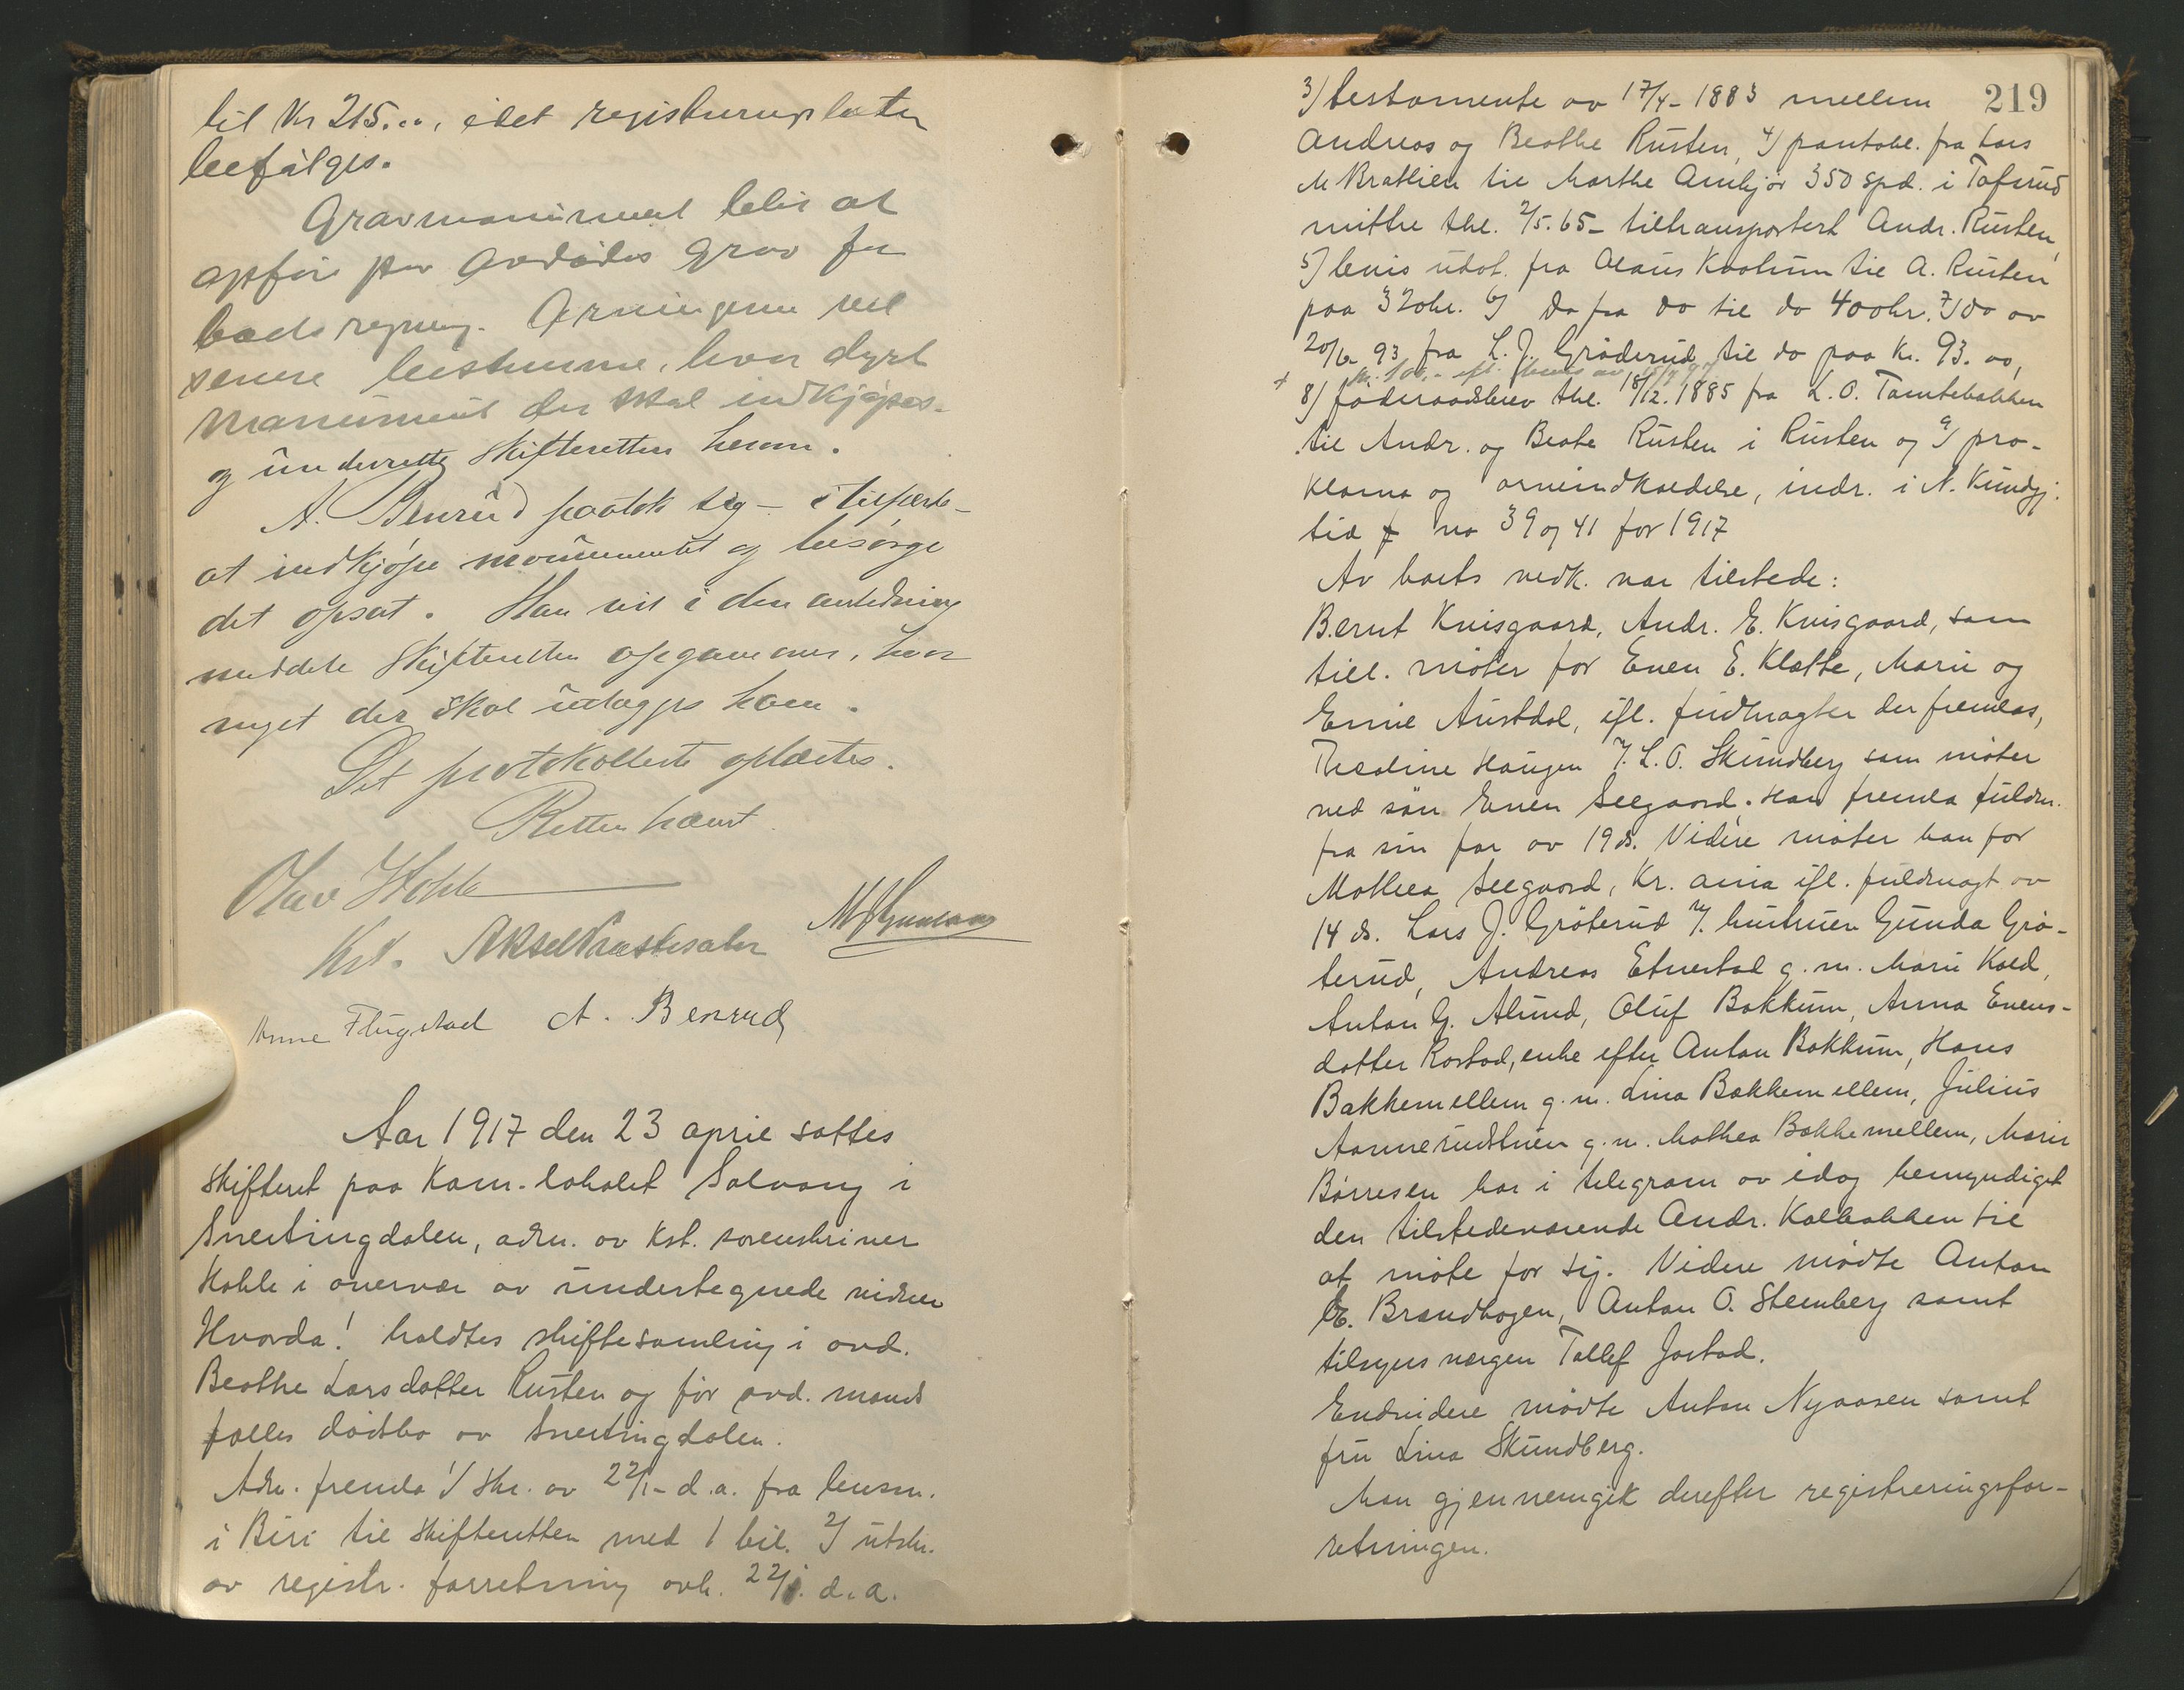 til Kr 215.00, idet registreringstaksten
befølges.
Gravmonument blir at
opføre paa avdødes grav for
boets regning. Arvingene vil
senere bestemme, hvor dyrt
monument der skal indkjøpes
og underrette skifteretten herom.
A. Benrud paatok sig - i tilfælde -
at indkjøpe monumentet og besørge
det opsat. Han vil i den anledning
meddele Skifteretten opgave over, hvor
meget der skal utlægges ham.
Det protokollerte oplæstes.
Retten hævet
Olav Hohle
Kst. Aksel
Anne Flugstad A. Benrud
Aar 1917 den 23 april sattes
skifteret paa Kom.-lokalet Solvang i
Snertingdalen, adm. av Kst. sorenskriver
Hohle i overvær av undertegnede vidner
Hvorda! holdtes skiftesamling i avd.
Beathe Larsdatter Rusten og før avd. mands
fælles dødsbo av Snertingdalen.
Adm. fremla 1/ skr. av 22/1- d.a. fra lensm.
i Biri til skifteretten med 1 bil. 2/ utskr.
av registr. forretning avh. 22/1. d.a.
219
3/ testamente av 17/4- 1883 mellem
Andreas og Beathe Rusten, 4/ pantobl. fra Lars
M Bratlien til Marthe 350 spd. i
mittre thl. 2/5. 65- tiltransportert Andr. Rusten,
5/ bevis utst. fra Olaus til A. Rusten
paa 320kr. 6/ Do fra do til do 400kr. 7/ do av
20/6 93 fra L. J. Grøderud til do paa Kr. 93.00,
8/ føderaadsbrev thl. 18/12. 1885 fra L. O. Tamtebakken
til Andr. og Beate Rusten i Rusten og 9/ pro-
klama og arveindkaldelse, indr. i N. Kundgj.
tid no 39 og 41 for 1917
Av boets vedk. var tilstede:
Bernt Kvisgaard, Andr. E. Kvisgaard, som
till. møter for Even E. Klætte, Marie og
Emil Austdal, ifl. fuldmagter der fremlas,
Theoline Haugen v/ L. O. Skundberg som møter
ved søn Even Seegaard. Han fremla fuldm.
fra sin far av 19 ds. Videre møter han for
Mathea Seegaard, Kr. ania ifl. fuldmagt av
14 ds. Lars J. Grøterud v/ hustruen Gunda Grø-
terud, Andreas Etnestad g. m. Marie Kold,
Anton G. Alund, Oluf Bakkum, Anna Evens-
datter Rostad, enke efter Anton Bakkum, Hans
Bakkemellem g. m. Lina Bakkemellem, Julius
Aannerudstuen g. m. Mathea Bakkemellem, Marie
Børresen har i telegram av idag bemyndiget
den tilstedeværende Andr. Kalbakken til
at møte for sig. Videre mødte Anton
E. Brandhagen, Anton O. Stenberg samt
tilsynsværgen Tollef Jostad.
Endvidere mødte Anton Nyaasen samt
fru Lina Skundberg.
Man gjennemgik derefter registreringsfor-
retningen.